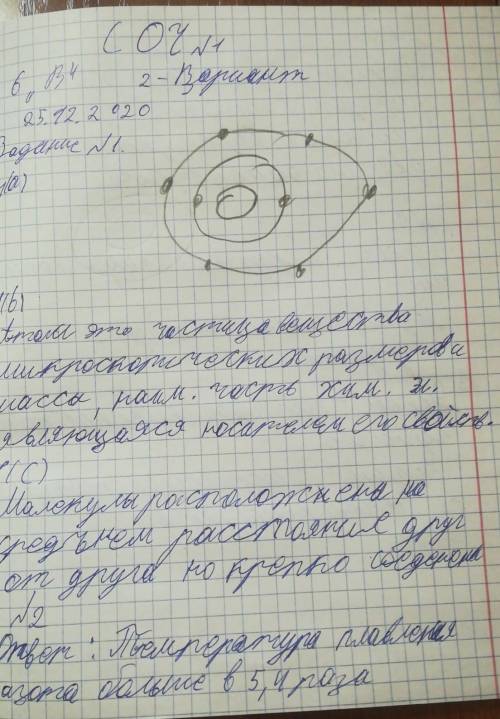 СОЧ №1
6 „В" 2-Вариант
25.12.2020
Задание №1.
1(а)
1(b)
Атомы это частица вещества
микроскопических размеров и
массы, наим. часть хим. эл.
являющаяся носителем его свойств.
1(С)
Малекулы расположжены на
средьнем расстояние друг
от друга но крепко соеденены
№2
Ответ: Тъемпература плавления
азота больше в 5,4 раза